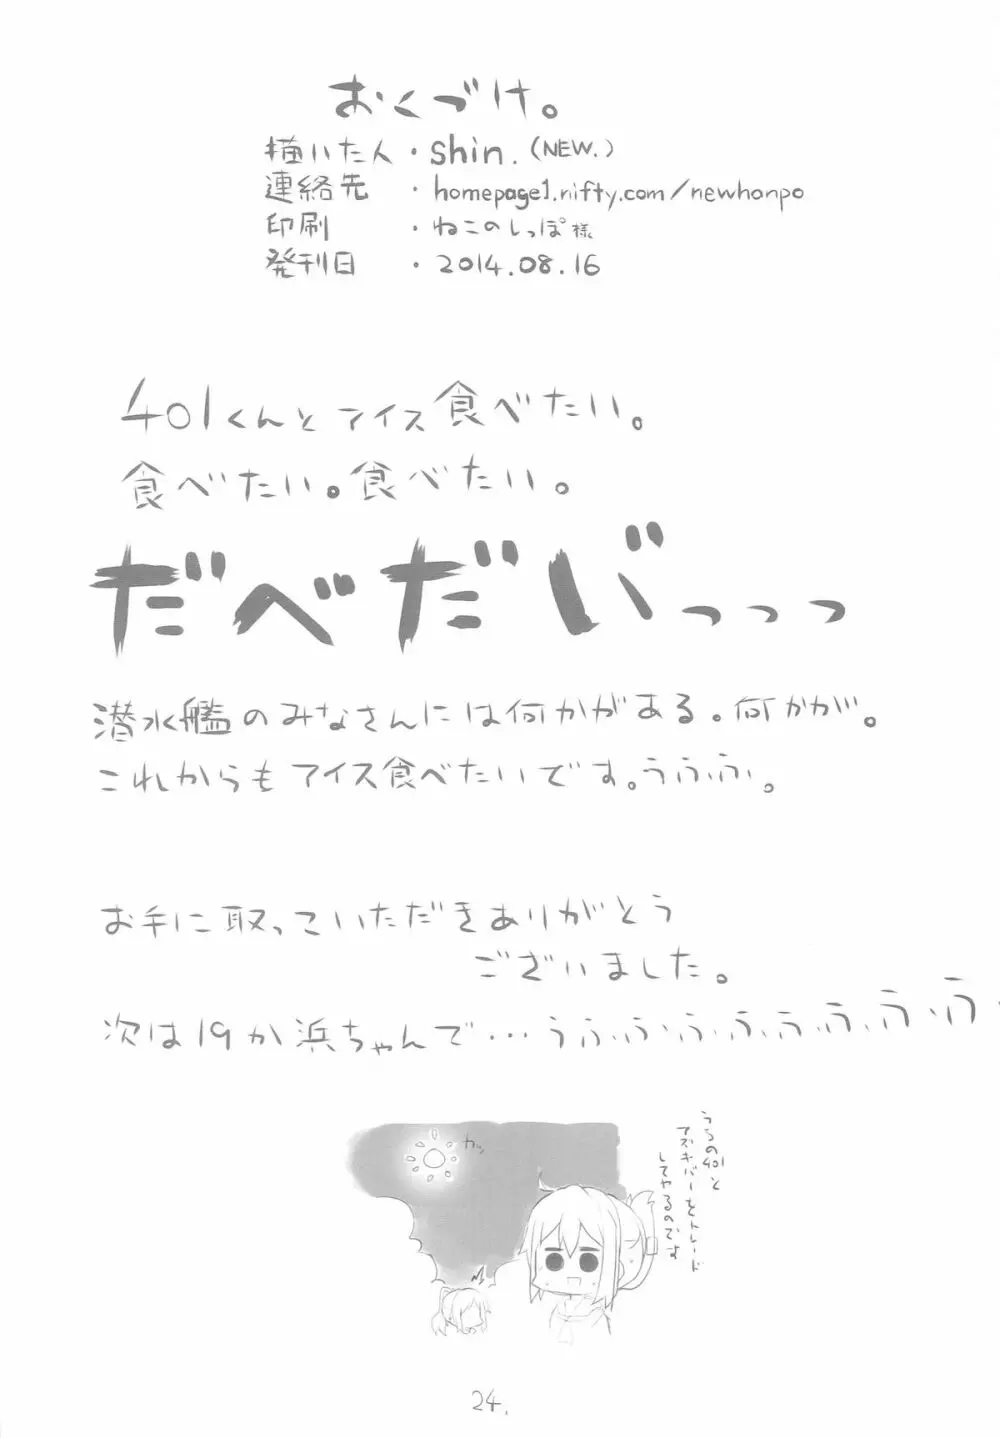 おくづけ。
描いた人・shin.(NEW.)
連絡先・homepage1.nifty.com/newhanpo
印刷・ねこのしっぽ様
発刊日・2014.08.16
401くんとアイス食べたい。
食べたい。食べたい。
だべだい゛っっっ
潜水艦のみなさんには何かがある。何かが。
これからもアイス食べたいです。うふふふ。
お手に取っていただきありがとう
ございました。
次は19か浜ちゃんで…うふふふふふうふふうふ
カッ
うちの401と
アズキバーをトレード
してやるのです
24.